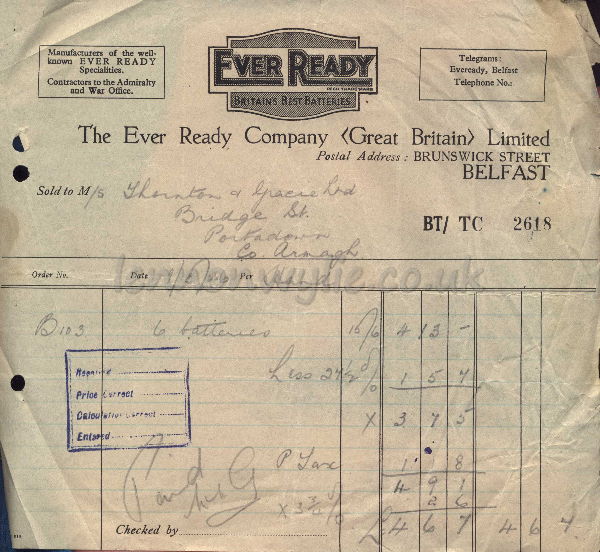 Manufacturers of the well-
known EVER READY
Specialities.
Contractors to the Admiralty
and War Office.
EVER READY
REGD. TRADE MARK
BRITAIN'S BEST BATTERIES
Telegrams:
Eveready, Belfast
Telephone No.:
The Ever Ready Company (Great Britain) Limited
Postal Address: BRUNSWICK STREET
BELFAST
Sold to M/s Thornton & Gracie Ltd
Bridge St.
Portadown
Co. Armagh
BT/ TC 2618
Order No. Date Per
B103 6 batteries 15/6 4 13 -
Less 27½ % 1 5 7
X 3 7 5
Required
Price Correct
Calculation Correct
Entered
P Tax 1 1 8
4 9 1
X 3 % 2 6
£4 6 7 4 6 7
Paid
Checked by